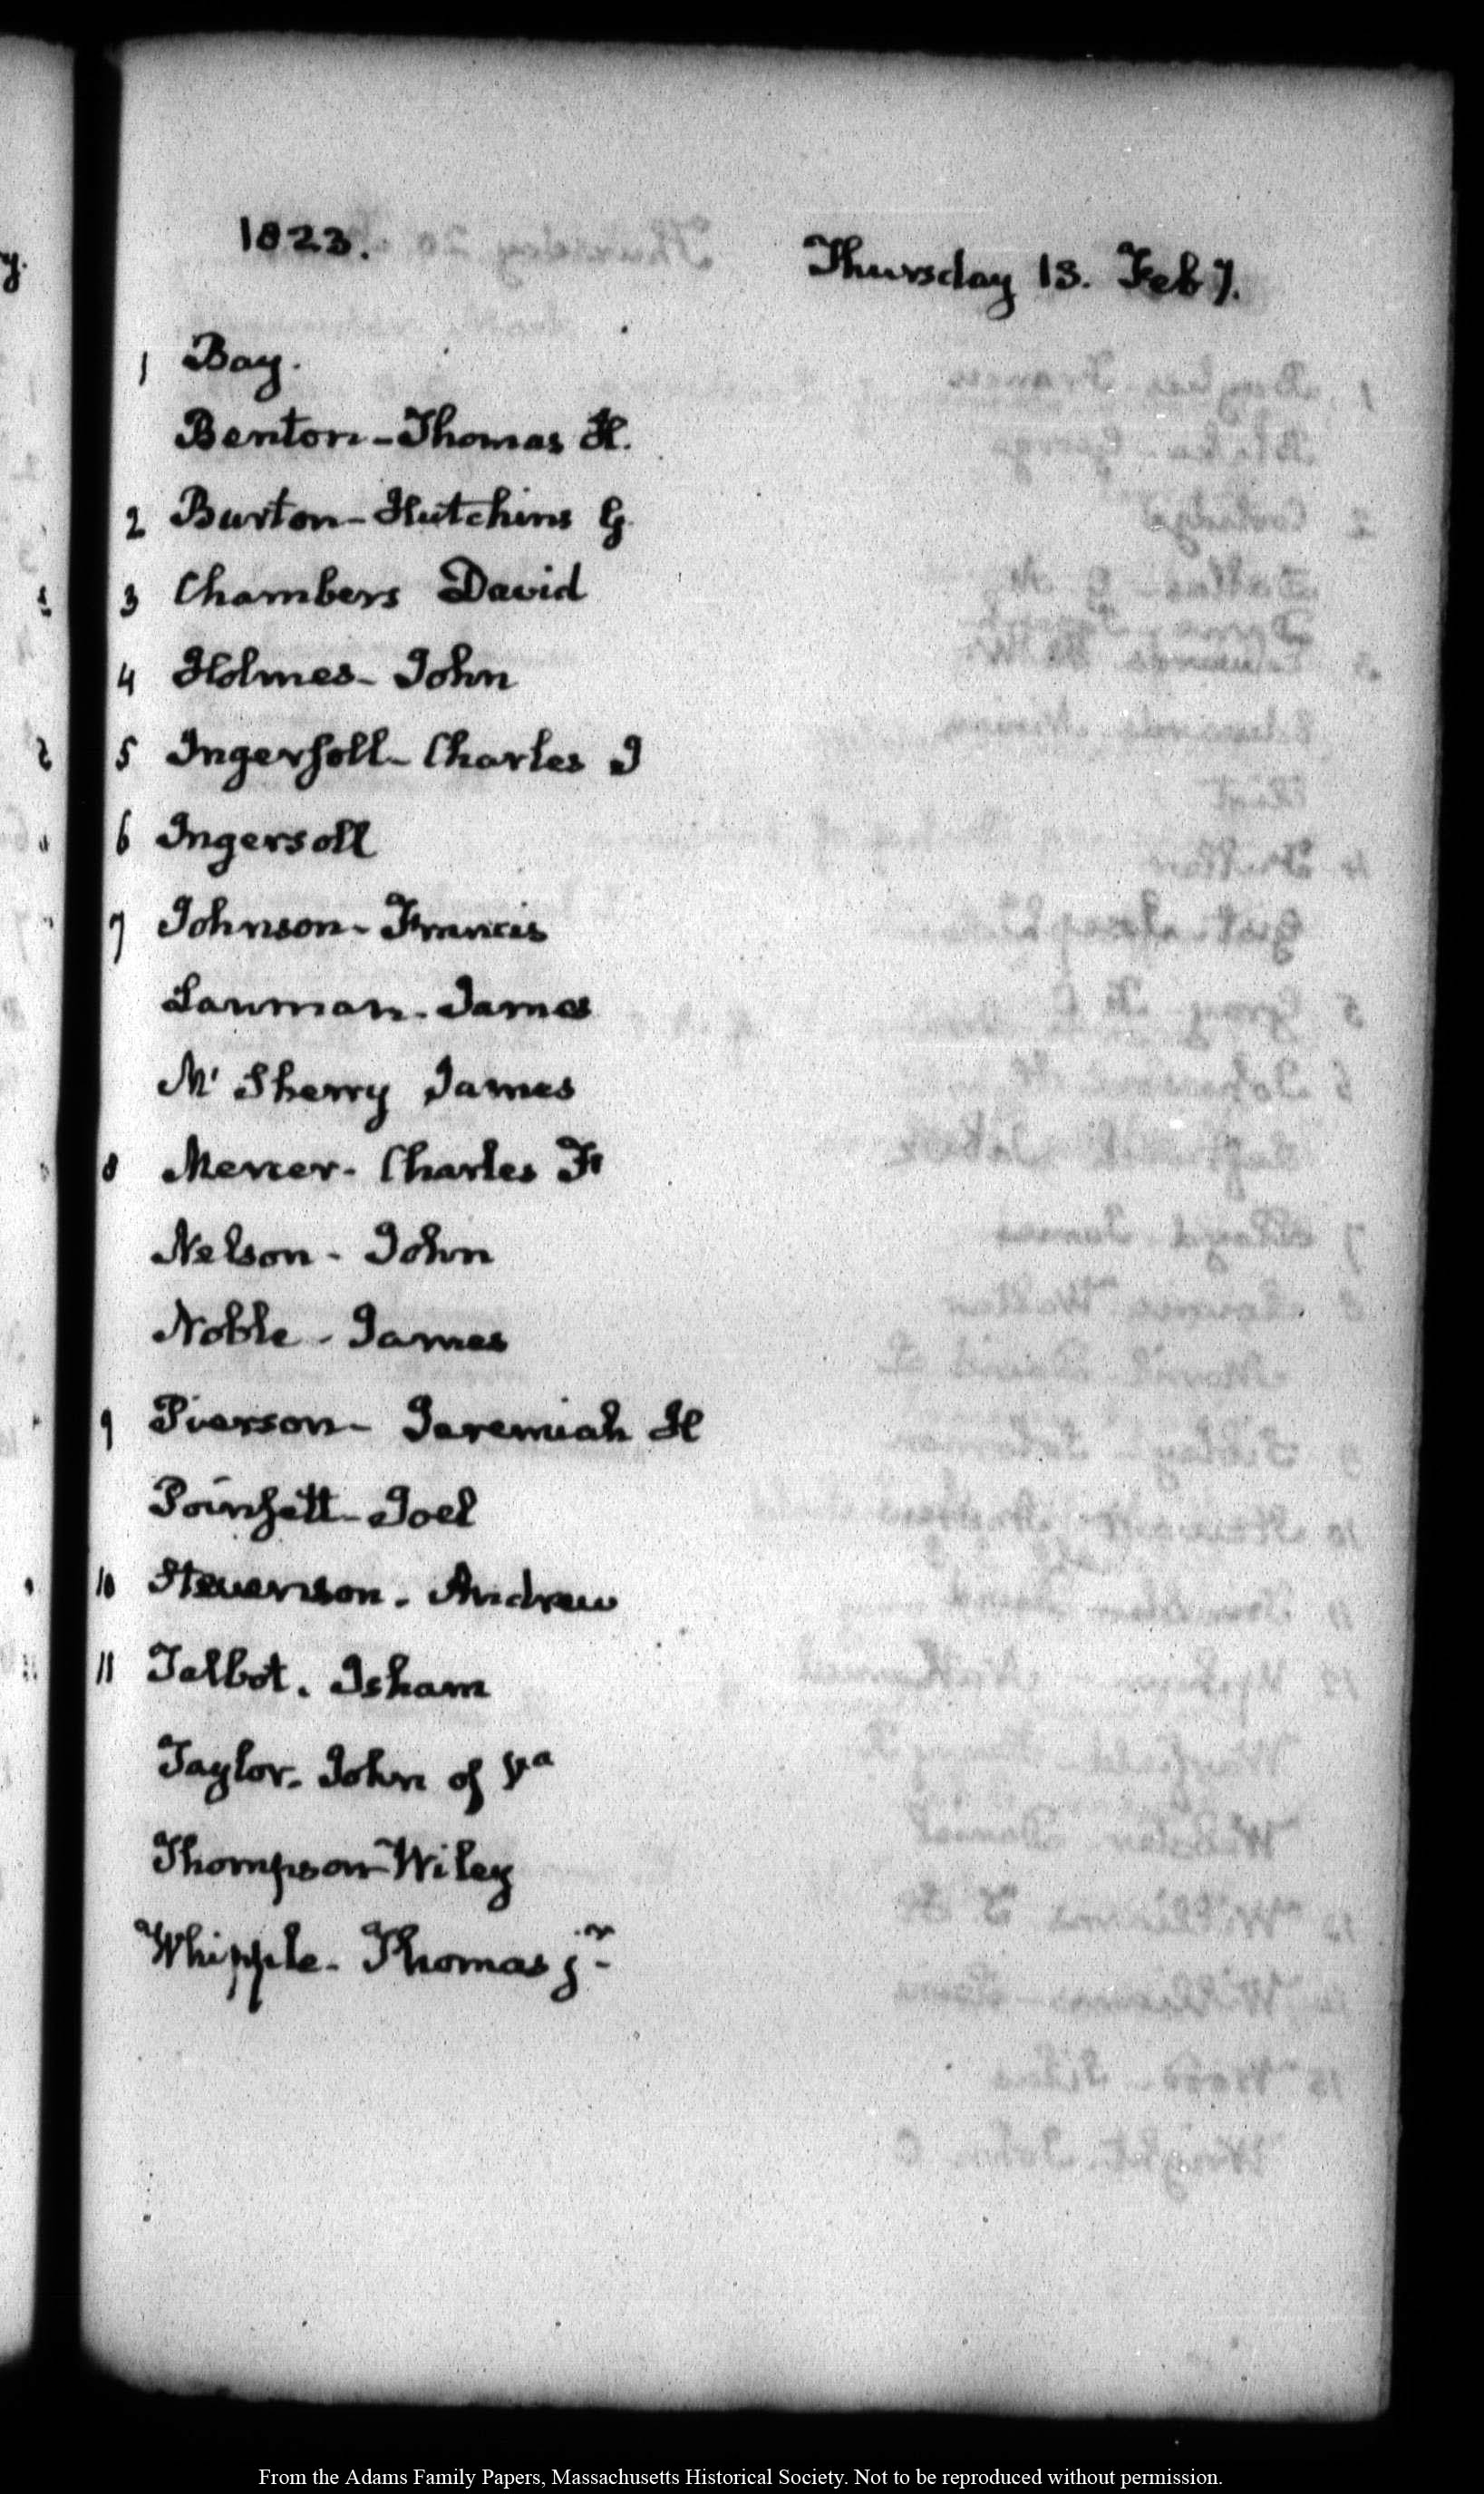 1823.
Thursday 13. Feby.
1 Bay.
Benton - Thomas H.
2 Burton - Hutchins G
3 Chambers David
4 Holmes - John
5 Ingersoll - Charles J
6 Ingersoll
7 Johnson - Francis
Lanman - James
Mc Sherry James
8 Mercer - Charles F
Nelson - John
Noble - James
9 Pierson - Jeremiah H
Poinsett - Joel
10 Stevenson. Andrew
11 Talbot. Isham
Taylor. John of Va
Thompson Wiley
Whipple - Thomas jr.
From the Adams Family Papers, Massachusetts Historical Society. Not to be reproduced without permission.